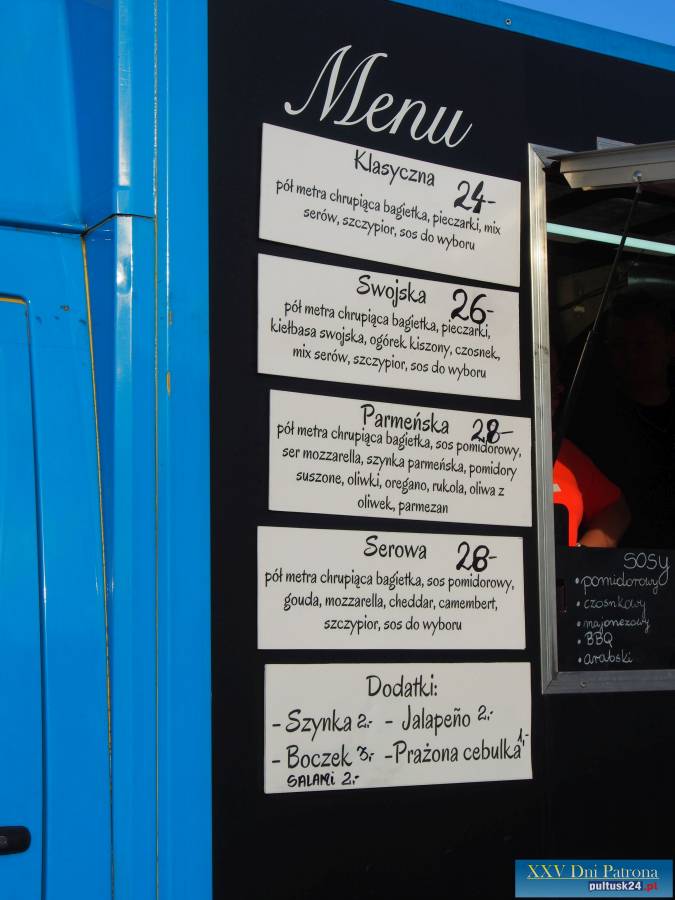 Menu
Klasyczna 24-
pół metra chrupiąca bagietka, pieczarki, mix
serów, szczypior, sos do wyboru
Swojska 26-
pół metra chrupiąca bagietka, pieczarki,
kiełbasa swojska, ogórek kiszony, czosnek,
mix serów, szczypior, sos do wyboru
Parmeńska 28-
pół metra chrupiąca bagietka, sos pomidorowy,
ser mozzarella, szynka parmeńska, pomidory
suszone, oliwki, oregano, rukola, oliwa z
oliwek, parmezan
Serowa 28-
pół metra chrupiąca bagietka, sos pomidorowy,
gouda, mozzarella, cheddar, camembert,
szczypior, sos do wyboru
Dodatki:
- Szynka 2.- - Jalapeño 2.-
- Boczek 3.- -Prażona cebulka 1,-
SALAMI 2.-
SOSY
• pomidorowy
• czosnkowy
• majonezowy
• BBQ
• arabski
XXV Dni Patrona
pultusk24.pl